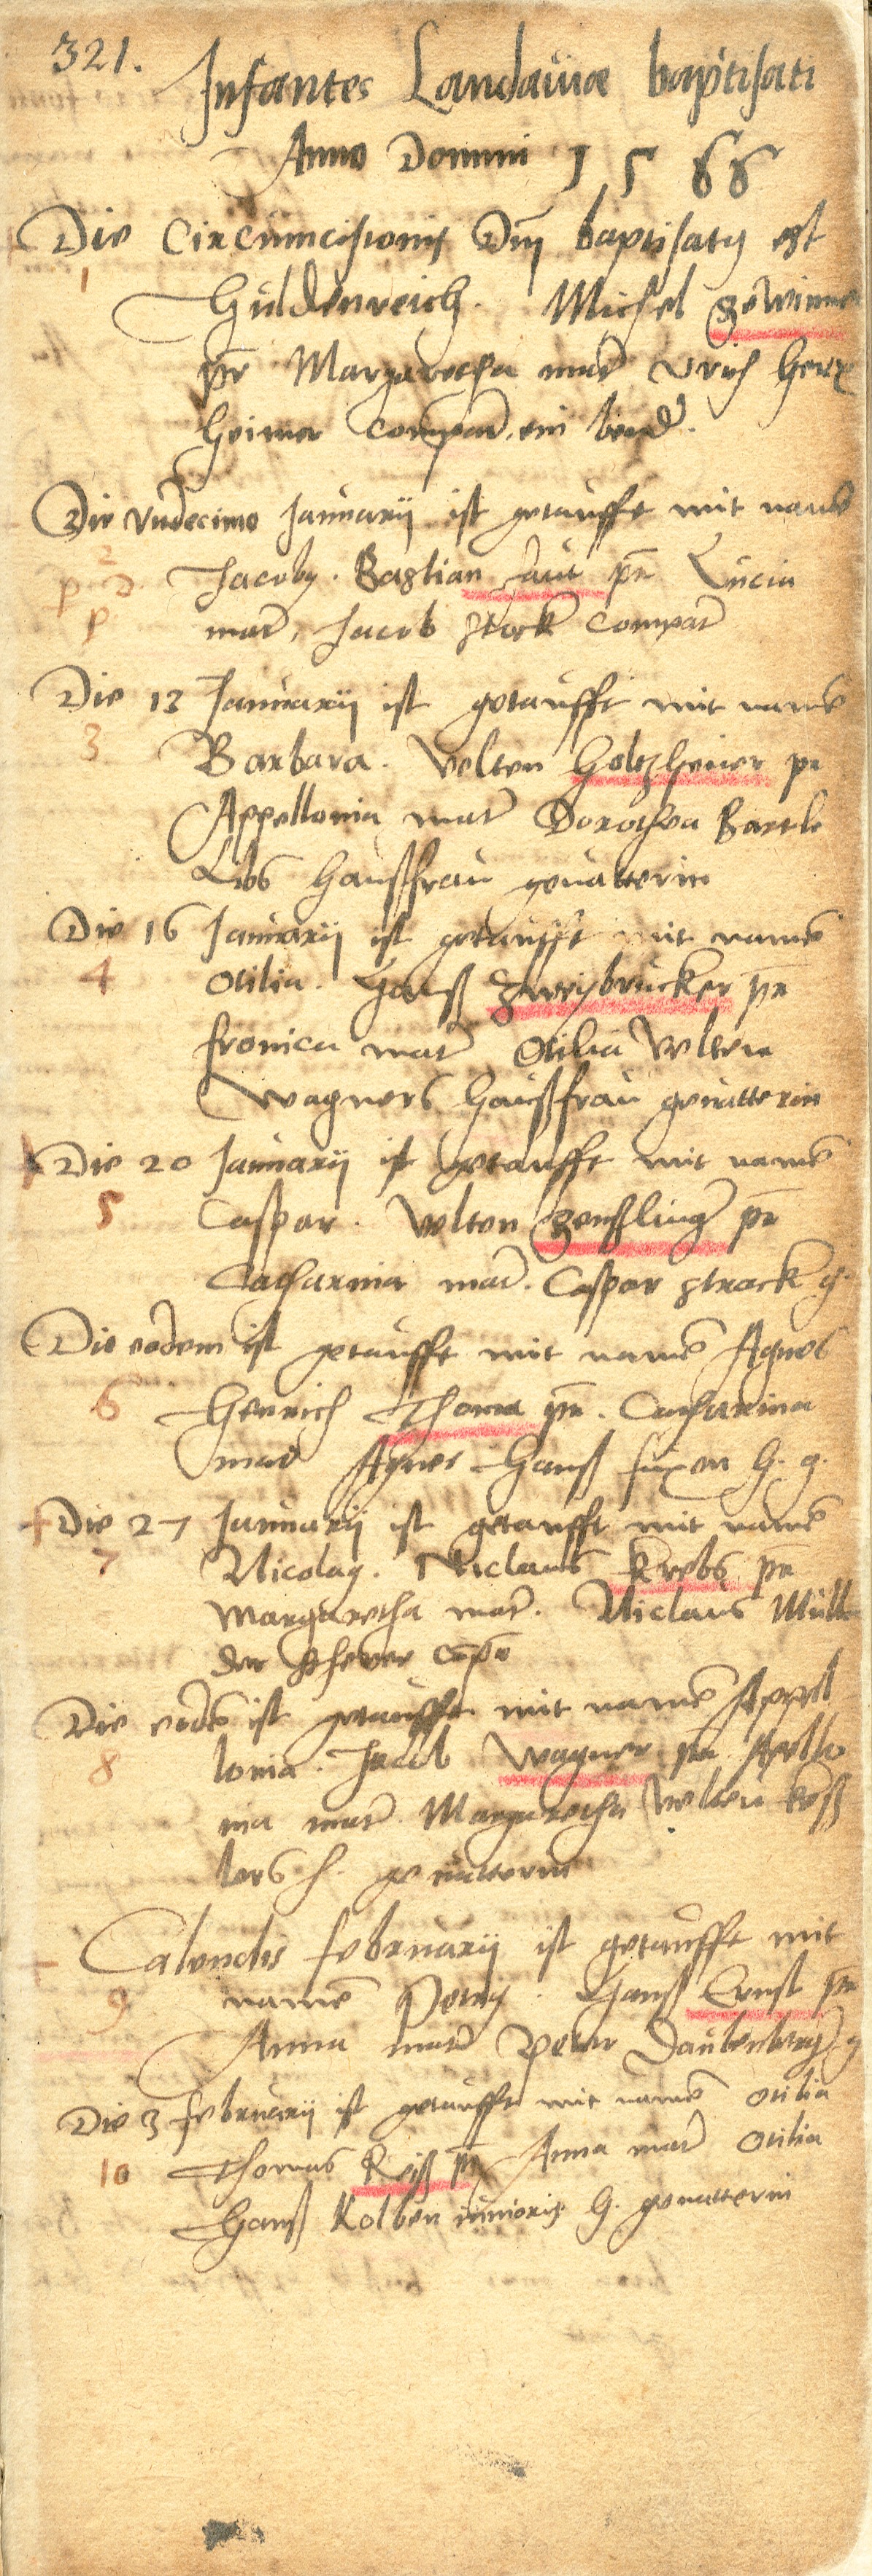 321.
Infantes Landauiæ baptisati
Anno Domini 1566
Die Circumcisionis Dnj baptisatq est
1
Guldenreich. Michel Gewinner
pr Margaretha mat Vrich Herx
heimer Compat. ein bend
Die Vndecimo Januarij ist getaufft mit name
2
Jacobq. Bastian pr Lucia
mat, Jacob stork Compat
Die 13 Januarij ist getaufft mit name
3
Barbara. Velten pr
Appellonia mat Dorothea Bartle
haußfrau geuatterin
Die 16 Januarij ist getaufft mit name
4
Otilia. Hanß Zweybrucker pr
fronica mat Otilia Velten
Wagners haußfrau geuatterin
Die 20 Januarij ist getaufft mit name
5
Caspar. Velten pr
Catharina mat. Caspar strack g.
Die eodem ist getaufft mit name Agnes
6
Henrich Thoma pr. Catharina
mat Agnes Hanß h. g.
Die 27 Januarij ist getaufft mit name
7
Nicolaq. Niclaus Krebs pr
Margaretha mat. Niclaus Müll
der
Die eode ist getaufft mit name Appel
8
lonia. Jacob Wagner pr Apello
nia mat Margaretha Velten Keß
lers h. geuatterin
Calendis februarij ist getaufft mit
9
name Petrq. Hanß Ernst pr
Anna mat Peter g
Die 3 februarij ist getaufft mit name Otilia
10
Thomas Reiß pr Anna mat Otilia
Hanß Kolben iunioris h. geuatterin